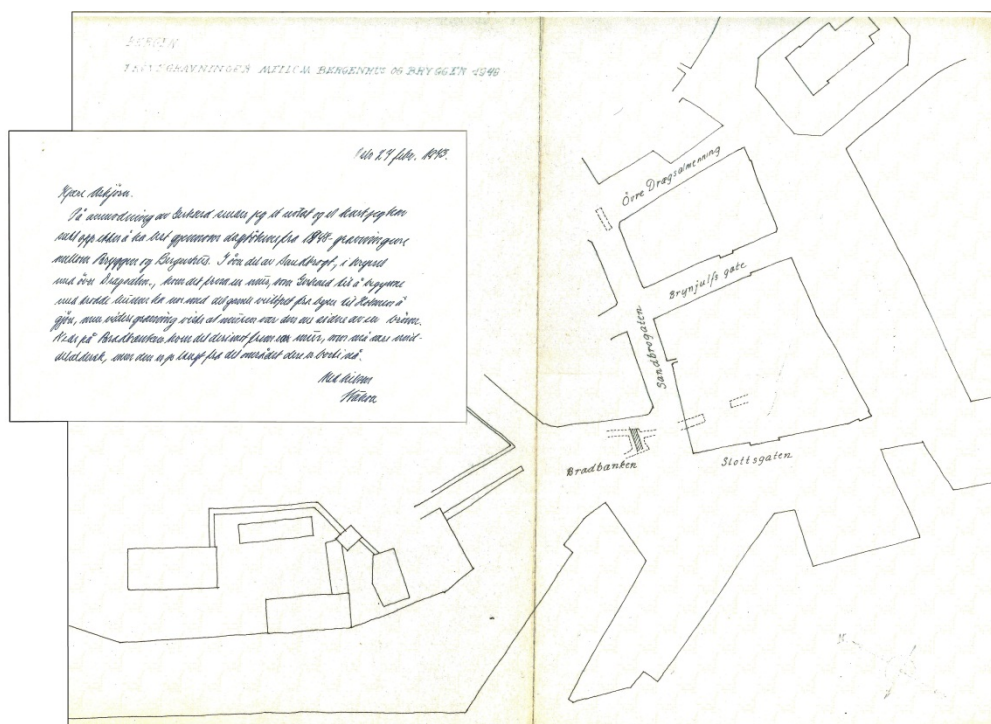 BERGEN
PRØVEGRAVNINGER MELLOM BERGENHUS OG BRYGGEN 1948
Oslo 27 febr. 1993.
Kjære Asbjørn.
På anmodning av Gerhard sender jeg et notat og et kart jeg har
satt opp etter å ha lest gjennom dagbökene fra 1948-gravningene
mellom Bryggen og Bergenhus. I övre del av Sandbrogt, i krysset
med övre Dragsalm., kom det frem en mür, som Gerhard til å begynne
med trodde kunne ha noe med det gamle veifaret fra byen til Holmen å
gjöre, men videre gravning viste at müren var den ene siden av en brönn.
Nede på Bradbanken kom det derimot frem en mür, som må være mid-
delaldersk, men den er jo langt fra det området dere er borti nå.
Med hilsen
Håkon
Övre Dragsalmenning
Brynjulfs gate
Sandbrogaten
Bradbanken
Slottsgaten
N